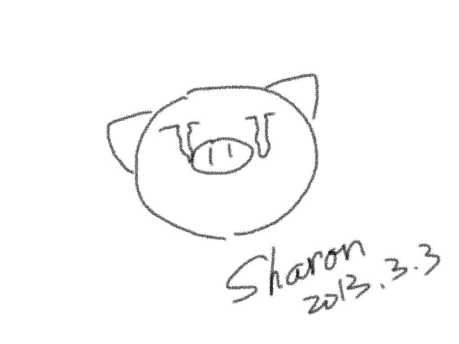 Sharon
2013.3.3